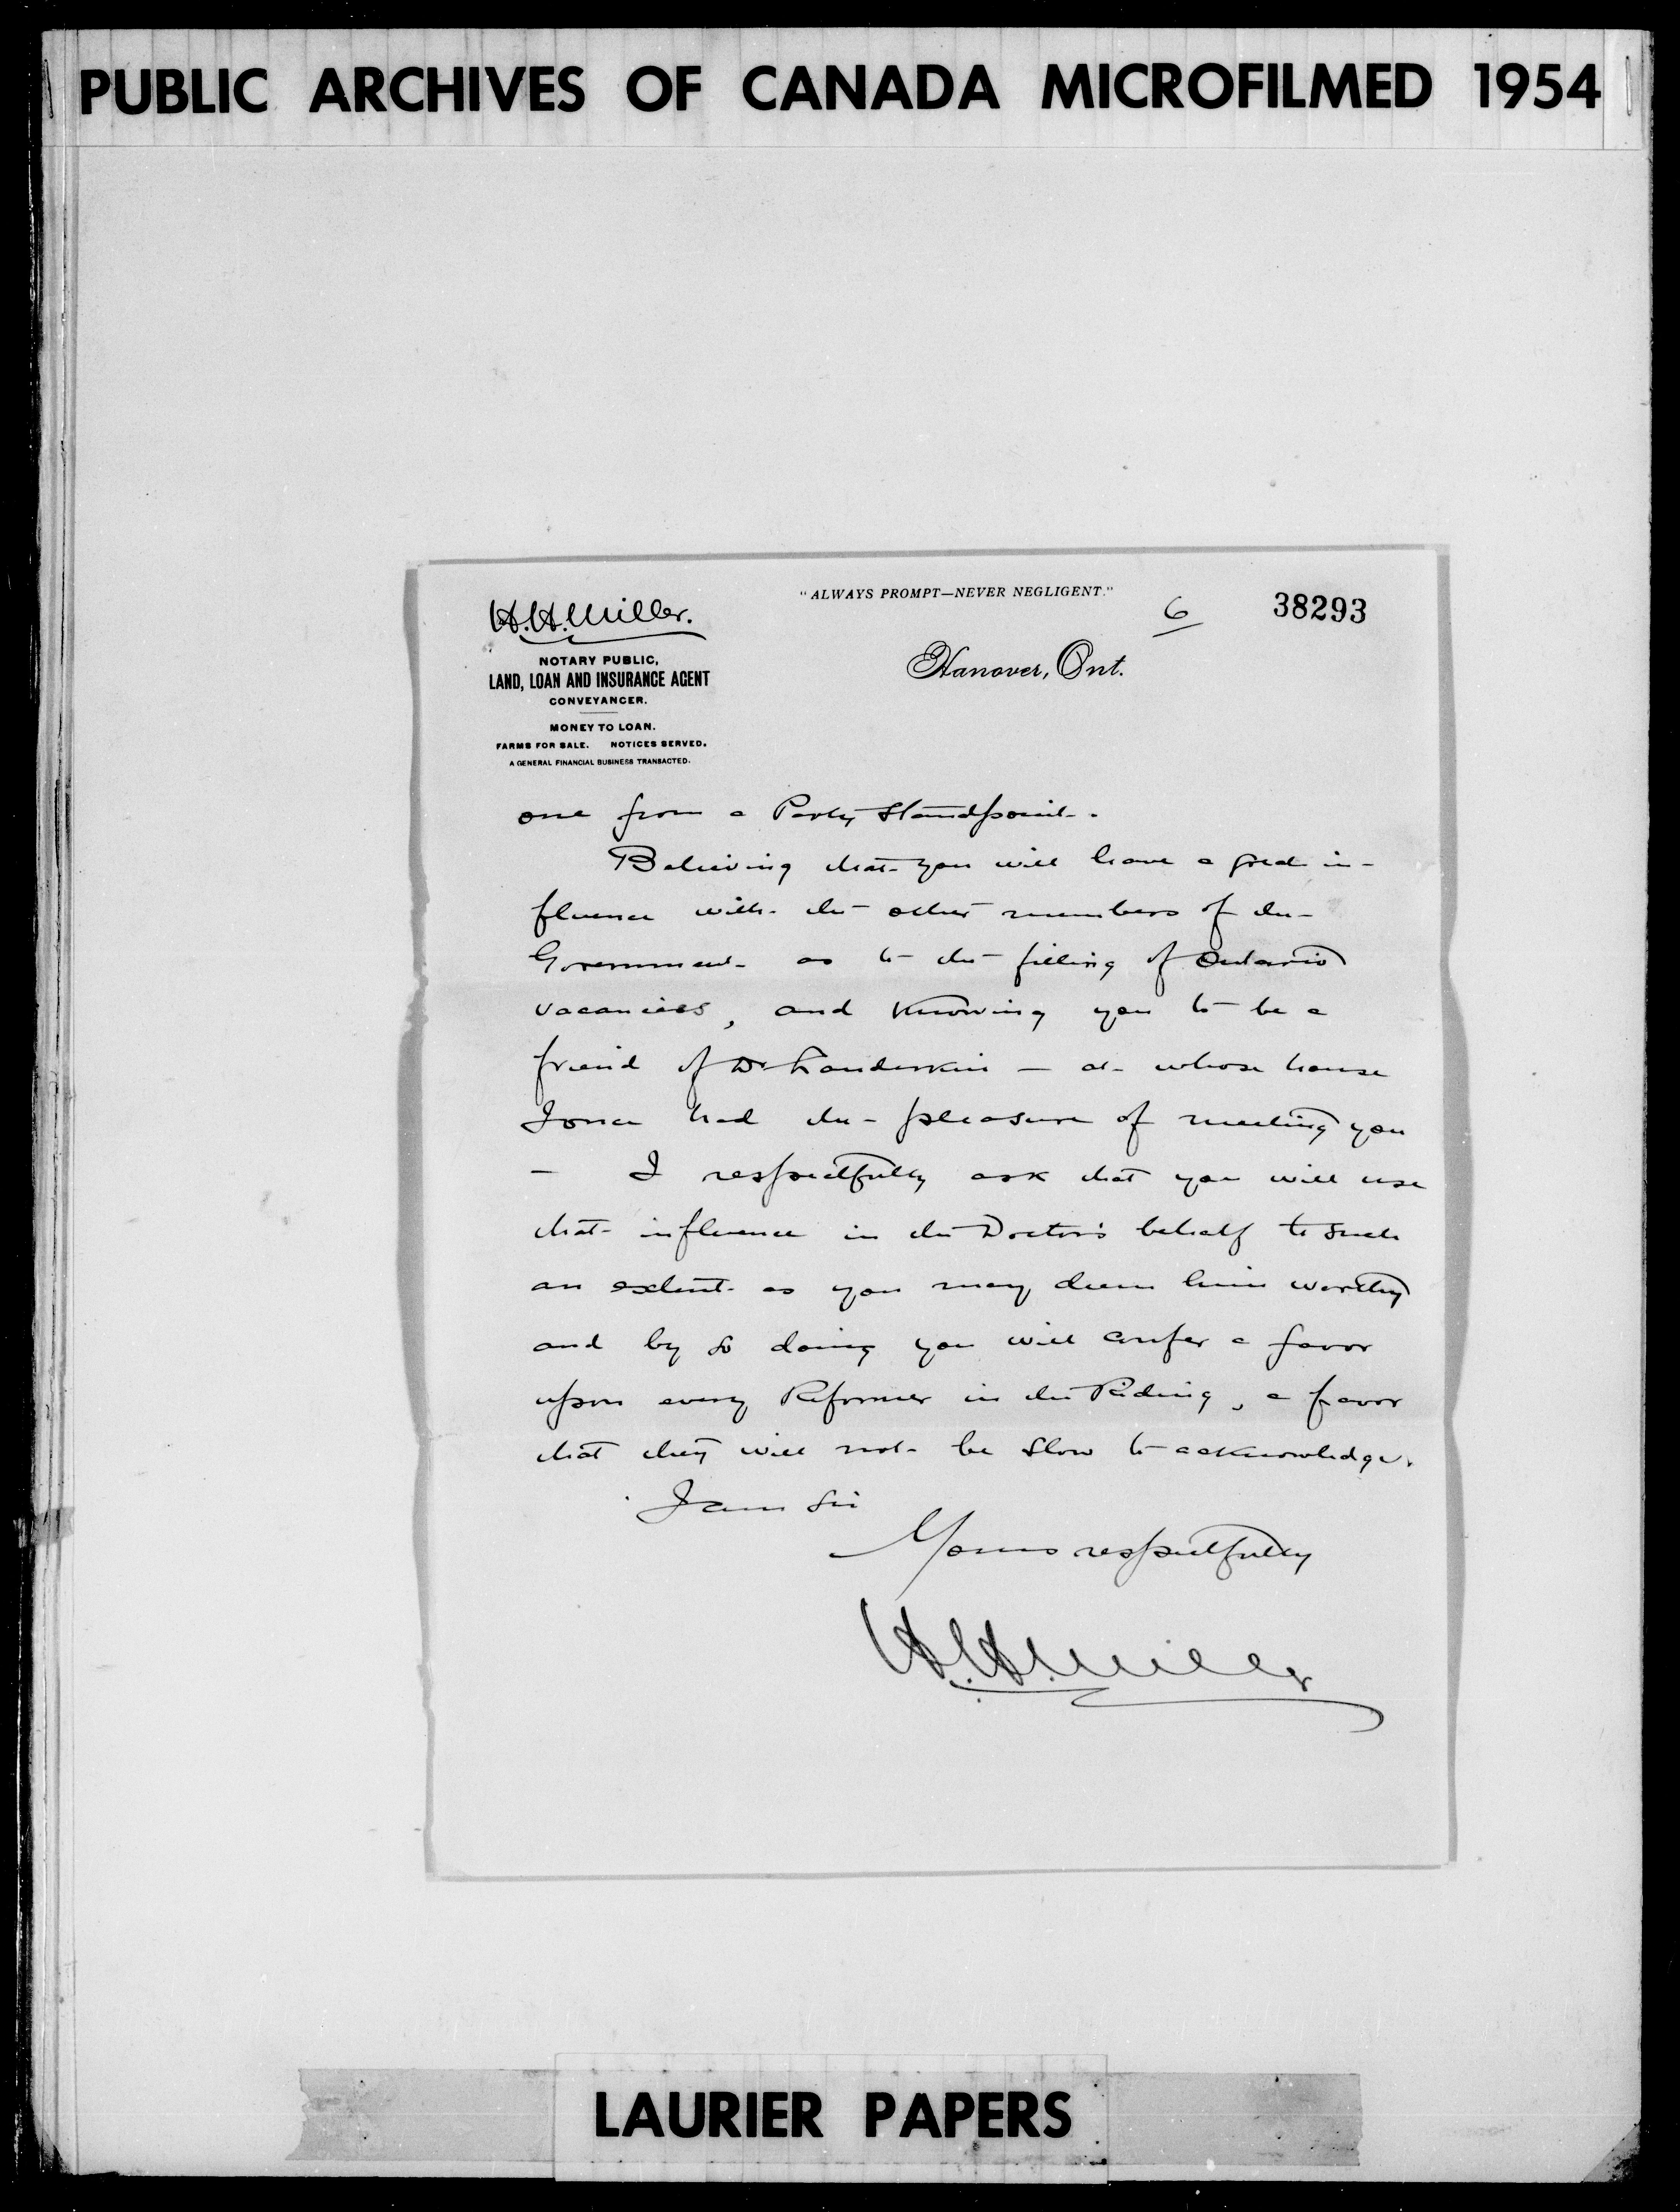 PUBLIC ARCHIVES OF CANADA MICROFILMED 1954
"ALWAYS PROMPT—NEVER NEGLIGENT."
6
38293
H.H. Miller.
NOTARY PUBLIC,
LAND, LOAN AND INSURANCE AGENT
CONVEYANCER.
MONEY TO LOAN.
FARMS FOR SALE. NOTICES SERVED.
A GENERAL FINANCIAL BUSINESS TRANSACTED.
Hanover, Ont.
one from a Party Standpoint.
Believing that you will have a great in-
fluence with the other members of the
Government as to the filling of Ontario
vacancies, and knowing you to be a
friend of Dr Landerkin — at whose house
I once had the pleasure of meeting you
— I respectfully ask that you will use
that influence in the Doctor's behalf to such
an extent as you may deem him worthy
and by so doing you will confer a favor
upon every Reformer in the Riding, a favor
that they will not be slow to acknowledge.
I am Sir
Yours respectfully
H.H. Miller
LAURIER PAPERS